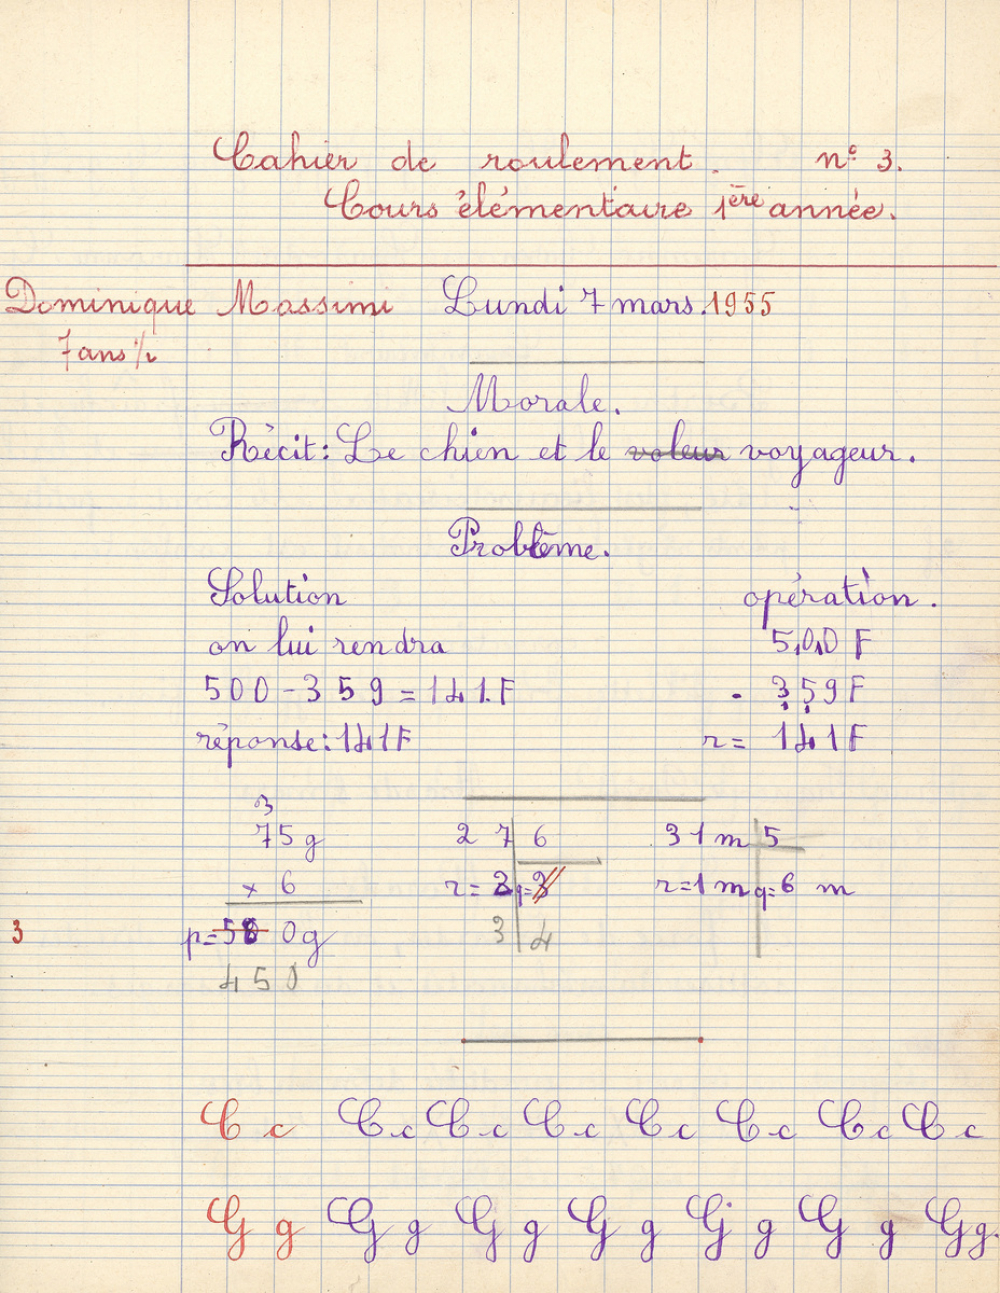 Cahier de roulement. n° 3.
Cours élémentaire 1ère année.
Dominique Massimi Lundi 7 mars.1955
7 ans ½
Morale.
Récit: Le chien et le voleur voyageur.
Problème.
Solution opération.
on lui rendra 500 F
500 - 359 = 141.F - 359 F
réponse: 141F r= 141F
3
75g 27 6 31 m 5
x 6 r= 3 q=3 r=1 m q=6 m
3 p=58 0g 3 4
450
C c C c C c C c C c C c C c C c
G g G g G g G g G g G g G g.